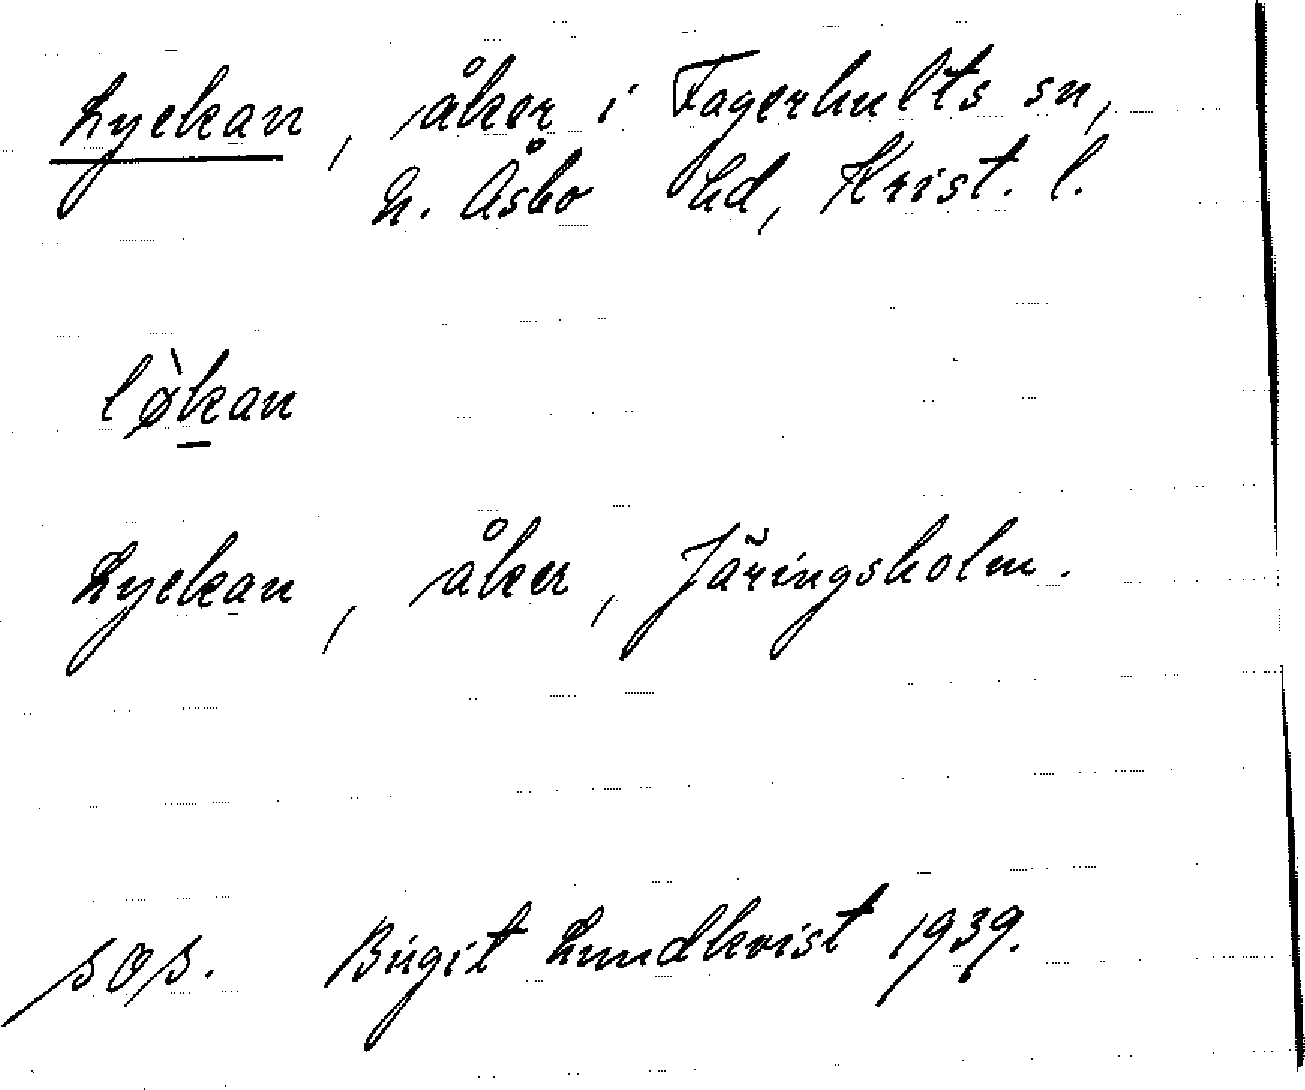 Lyckan, åker i Fagerhults sn,
N. Åsbo hd, Krist. l.
lø̀kan
Lyckan, åker, Järingsholm.
sos. Birgit Lundkvist 1939.